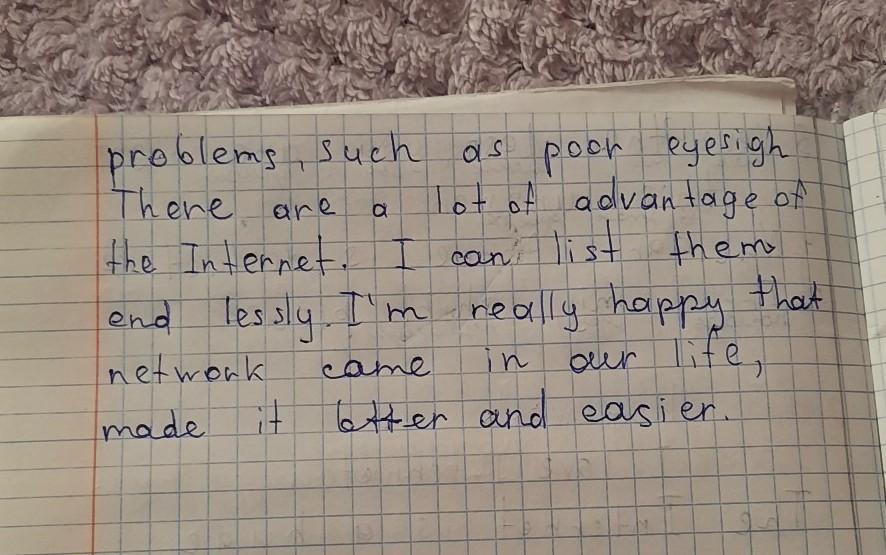 problems, such as poor eyesigh
There are a lot of advantage of
the Internet. I can list them
end lessly. I'm really happy that
network came in our life,
made it better and easier.